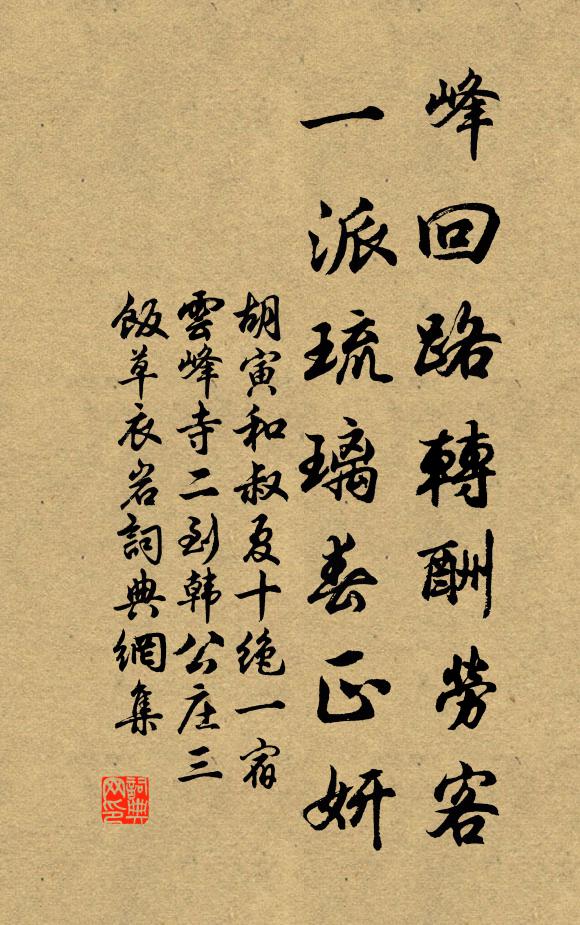 峰回路轉酬勞客
一派琉璃春正妍
胡寅和叔夏十絶一宿
雲峰寺二到韩公庄三
飯草衣岩詞典網集
詞典网印